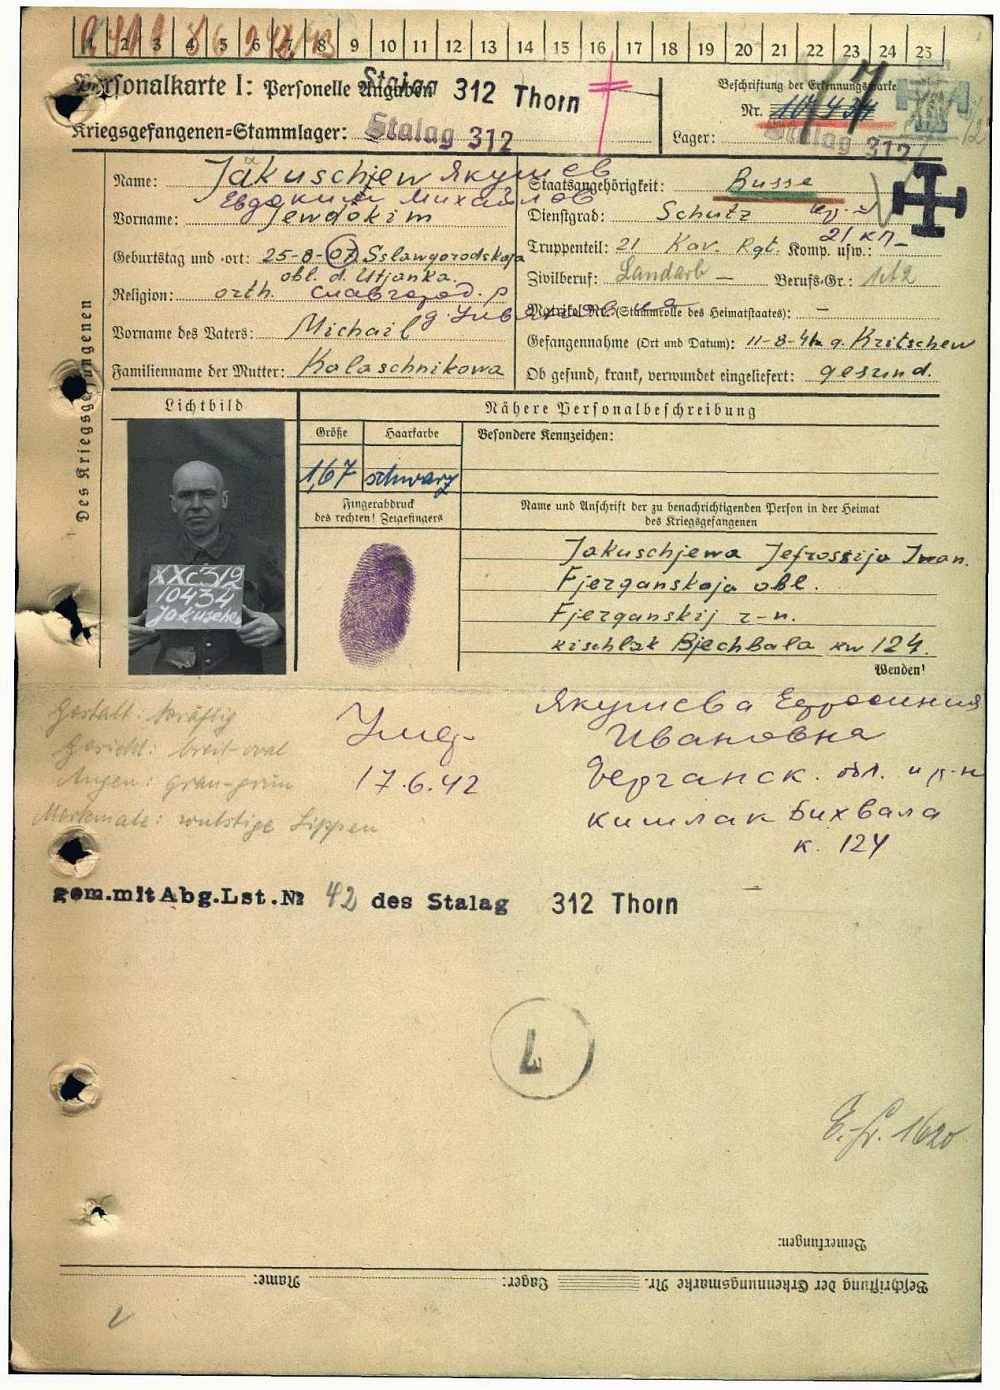 1 2 3 4 5 6 7 8 9 10 11 12 13 14 15 16 17 18 19 20 21 22 23 24 25
Personalkarte I: Personelle Angaben
Stalag 312 Thorn
Beschriftung der Erkennungsmarke
Nr. 10434
Kriegsgefangenen-Stammlager: Stalag 312
Lager: Stalag 312
Des Kriegsgefangenen
Name: Jakuschjew Якушев
Евдоким Михайлов
Vorname: Jewdokim
Geburtstag und -ort: 25-8-07. Sslawgorodskaja
obl. d. Utjanka.
Religion: orth. славгород. р
Vorname des Vaters: Michail
Familienname der Mutter: Kalaschnikowa
Staatsangehörigkeit: Russe
Dienstgrad: Schutz
21 кп
Truppenteil: 21 Kav. Rgt. Komp. usw.:
Zivilberuf: Landarb — Berufs-Gr.:
Matrikel Nr. (Stammrolle des Heimatstaates): —
Gefangennahme (Ort und Datum): 11-8-41 g. Kritschew
Ob gesund, krank, verwundet eingeliefert: gesund.
Lichtbild
Nähere Personalbeschreibung
Größe
Haarfarbe
Besondere Kennzeichen:
1,67
schwarz
Fingerabdruck
des rechten! Zeigefingers
Name und Anschrift der zu benachrichtigenden Person in der Heimat
des Kriegsgefangenen
XXc312
10434
Jakusche
Jakuschjewa Jefrossija Iwan.
Fjerganskaja obl.
Fjerganskij r-n.
kischlak Bjechbala kw 124.
Wenden!
Gestalt: kräftig
Gesicht: breit-oval
Augen: grau-grün
Merkmale: wulstige Lippen
Умер
17.6.42
Якушева Ефросиния
Ивановна
Ферганск. обл. и р-н
кишлак Бихвала
к. 124
gem.mit Abg.Lst.№ 42 des Stalag 312 Thorn
Bemerkungen:
Beschriftung der Erkennungsmarke Nr. Lager: Name: